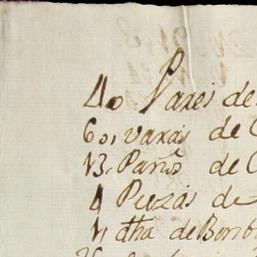 40 Pares de
60, varas de C
13, Pañs de C
4 Piezas de
4 dha de Bomb